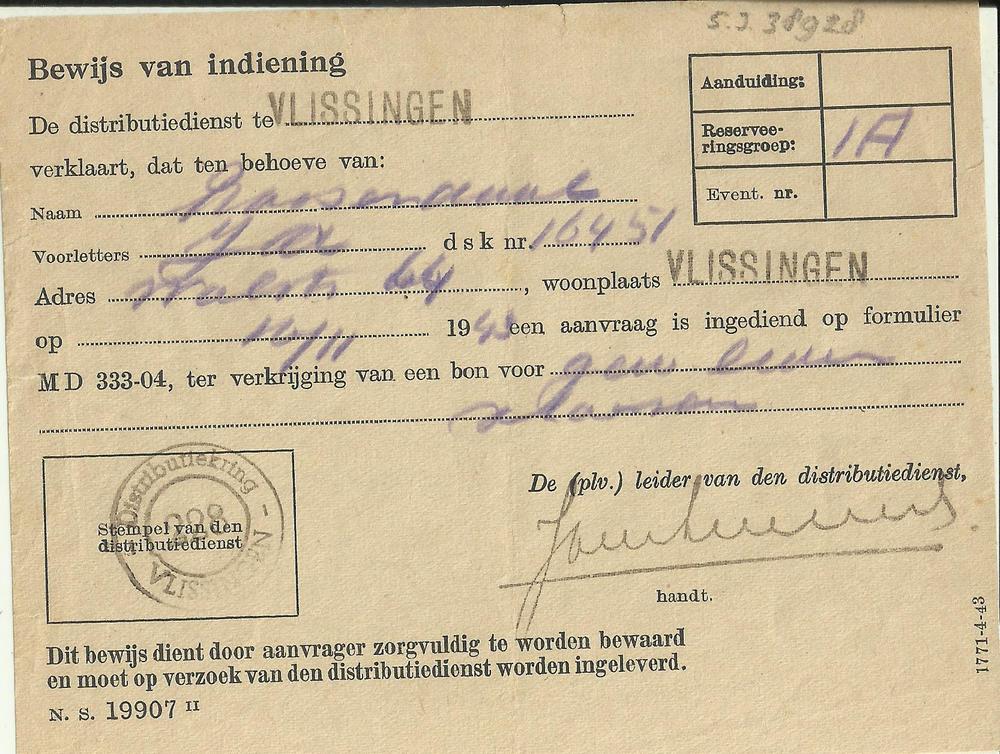 5.J. 38928
Bewijs van indiening
De distributiedienst te VLISSINGEN
verklaart, dat ten behoeve van:
Naam
Voorletters d s k nr. 16451
Adres 64, woonplaats VLISSINGEN
op 16/11 1943 een aanvraag is ingediend op formulier
MD 333-04, ter verkrijging van een bon voor
Aanduiding:
Reservee-
ringsgroep: 1A
Event. nr.
Distributiekring
228
VLISSINGEN
Stempel van den
distributiedienst
De (plv.) leider van den distributiedienst,
handt.
Dit bewijs dient door aanvrager zorgvuldig te worden bewaard
en moet op verzoek van den distributiedienst worden ingeleverd.
N. S. 19907 II
1771-4-43